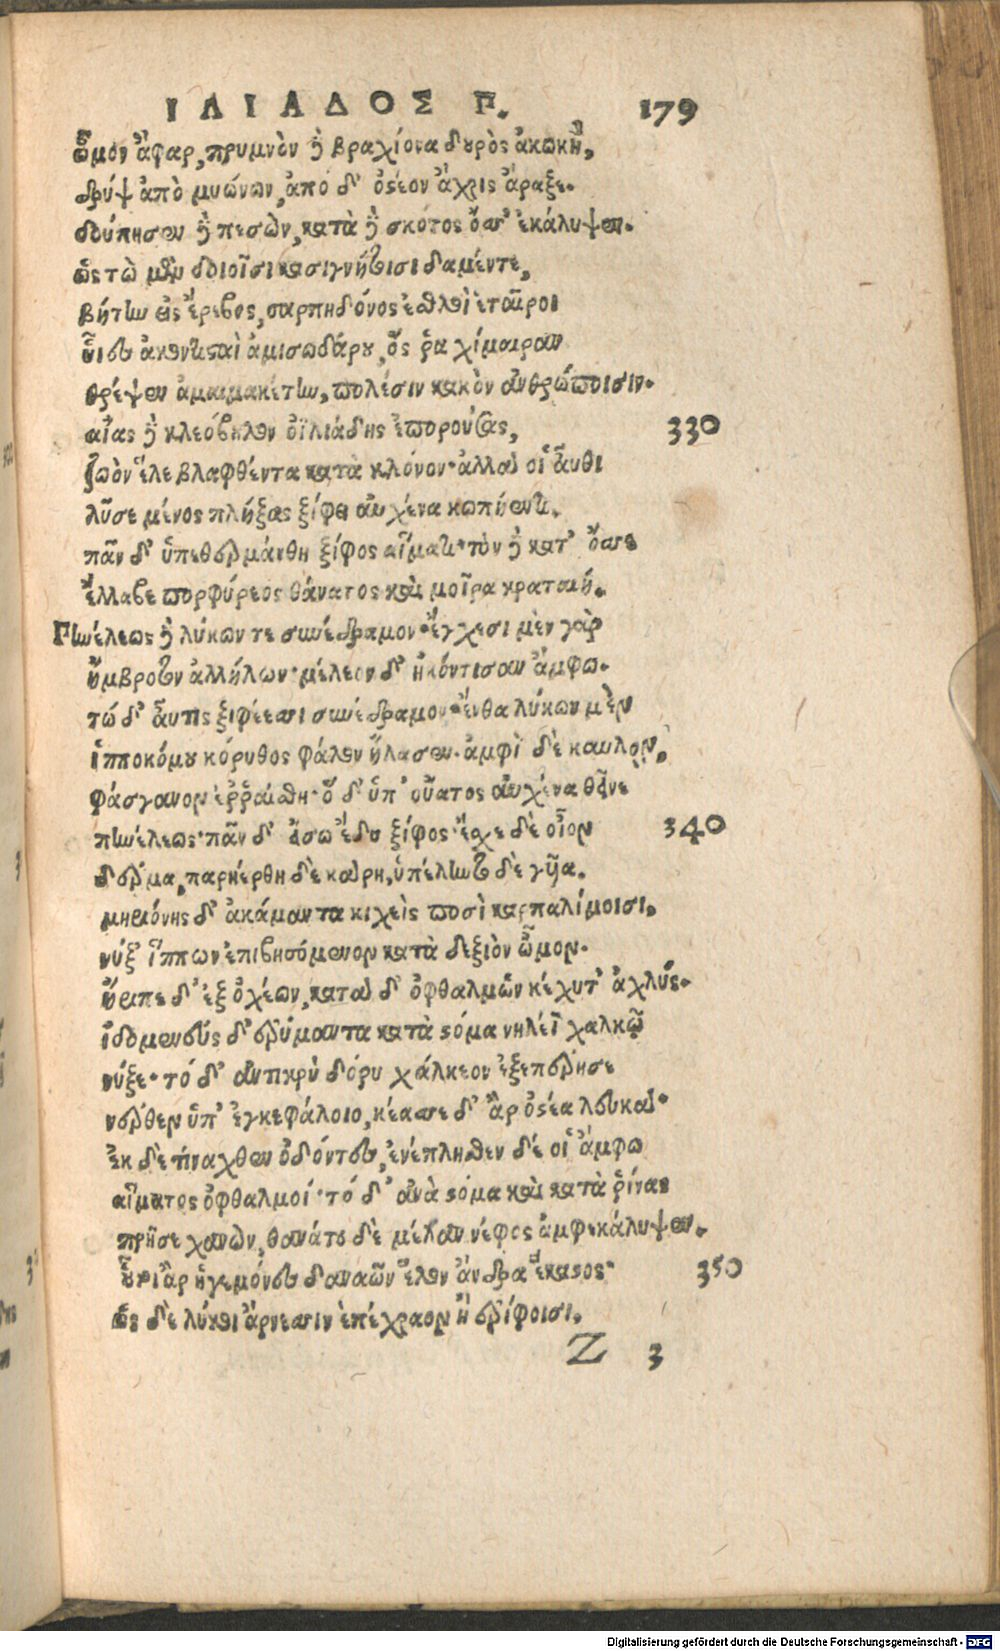 ΙΛΙΑΔΟΣ Π. 179
ὦμον ἄφαρ, πρυμνὸν δὲ βραχίονα δουρὸς ἀκωκὴ,
δρύψ' ἀπὸ μυώνων, ἀπὸ δ' ὀστέον ἄχρις ἄραξε.
δούπησεν δὲ πεσὼν, κατὰ δὲ σκότος ὄσσ' ἐκάλυψεν.
ὣς τὼ μὲν δοιοῖσι κασιγνήτοισι δαμέντε,
βήτην εἰς ἔρεβος, σαρπηδόνος ἐσθλοὶ ἑταῖροι
υἷες ἀκοντισταὶ ἀμισωδάρου, ὅς ῥα χίμαιραν
θρέψεν ἀμαιμακέτην, πολέσιν κακὸν ἀνθρώποισιν.
αἴας δὲ κλεόβουλον ὀϊλιάδης ἐπορούσας, 330
ζωὸν ἕλε βλαφθέντα κατὰ κλόνον· ἀλλά οἱ αὖθι
λῦσε μένος πλήξας ξίφει αὐχένα κωπήεντι.
πᾶν δ' ὑπεθερμάνθη ξίφος αἵματι· τὸν δὲ κατ' ὄσσε
ἔλλαβε πορφύρεος θάνατος καὶ μοῖρα κραταιή.
Πηνέλεως δὲ λύκων τε συνέδραμον· ἔγχεσι μὲν γὰρ
ἤμβροτον ἀλλήλων· μέλεον δ' ἠκόντισαν ἄμφω.
τώ δ' αὖτις ξιφέεσσι συνέδραμον· ἔνθα λύκων μὲν
ἱπποκόμου κόρυθος φάλον ἤλασεν. ἀμφὶ δὲ καυλὸν,
φάσγανον ἐρῥαίσθη· ὁ δ' ὑπ' οὔατος αὐχένα θεῖνε
πηνέλεως· πᾶν δ' εἴσω ἔδυ ξίφος· ἔσχε δὲ οἶον 340
δέρμα, παρηέρθη δὲ κάρη, ὑπέλυντο δὲ γυῖα.
μηριόνης δ' ἀκάμαντα κιχεὶς ποσὶ καρπαλίμοισι,
νύξ' ἵππων ἐπιβησόμενον κατὰ δεξιὸν ὦμον.
ἤριπε δ' ἐξ ὀχέων, κατὰ δ' ὀφθαλμῶν κέχυτ' ἀχλύς.
ἰδομενεύς δ' ἐρύμαντα κατὰ στόμα νηλέϊ χαλκῷ
νύξε· τό δ' ἀντικρὺ δόρυ χάλκεον ἐξεπέρησε
νέρθεν ὑπ' ἐγκεφάλοιο, κέασσε δ' ἄρ ὀστέα λευκά·
ἐκ δὲ τίναχθεν ὀδόντες, ἐνέπλησθεν δέ οἱ ἄμφω
αἵματος ὀφθαλμοί· τό δ' ἀνὰ στόμα καὶ κατὰ ῥῖνας
πρῆσε χανών, θανάτου δὲ μέλαν νέφος ἀμφεκάλυψεν.
οὗτοι ἄρ ἡγεμόνες δαναῶν ἕλον ἄνδρα ἕκαστος· 350
ὡς δὲ λύκοι ἄρνεσσιν ἐπέχραον ἢ ἐρίφοισι.
Z 3
Digitalisierung gefördert durch die Deutsche Forschungsgemeinschaft - DFG